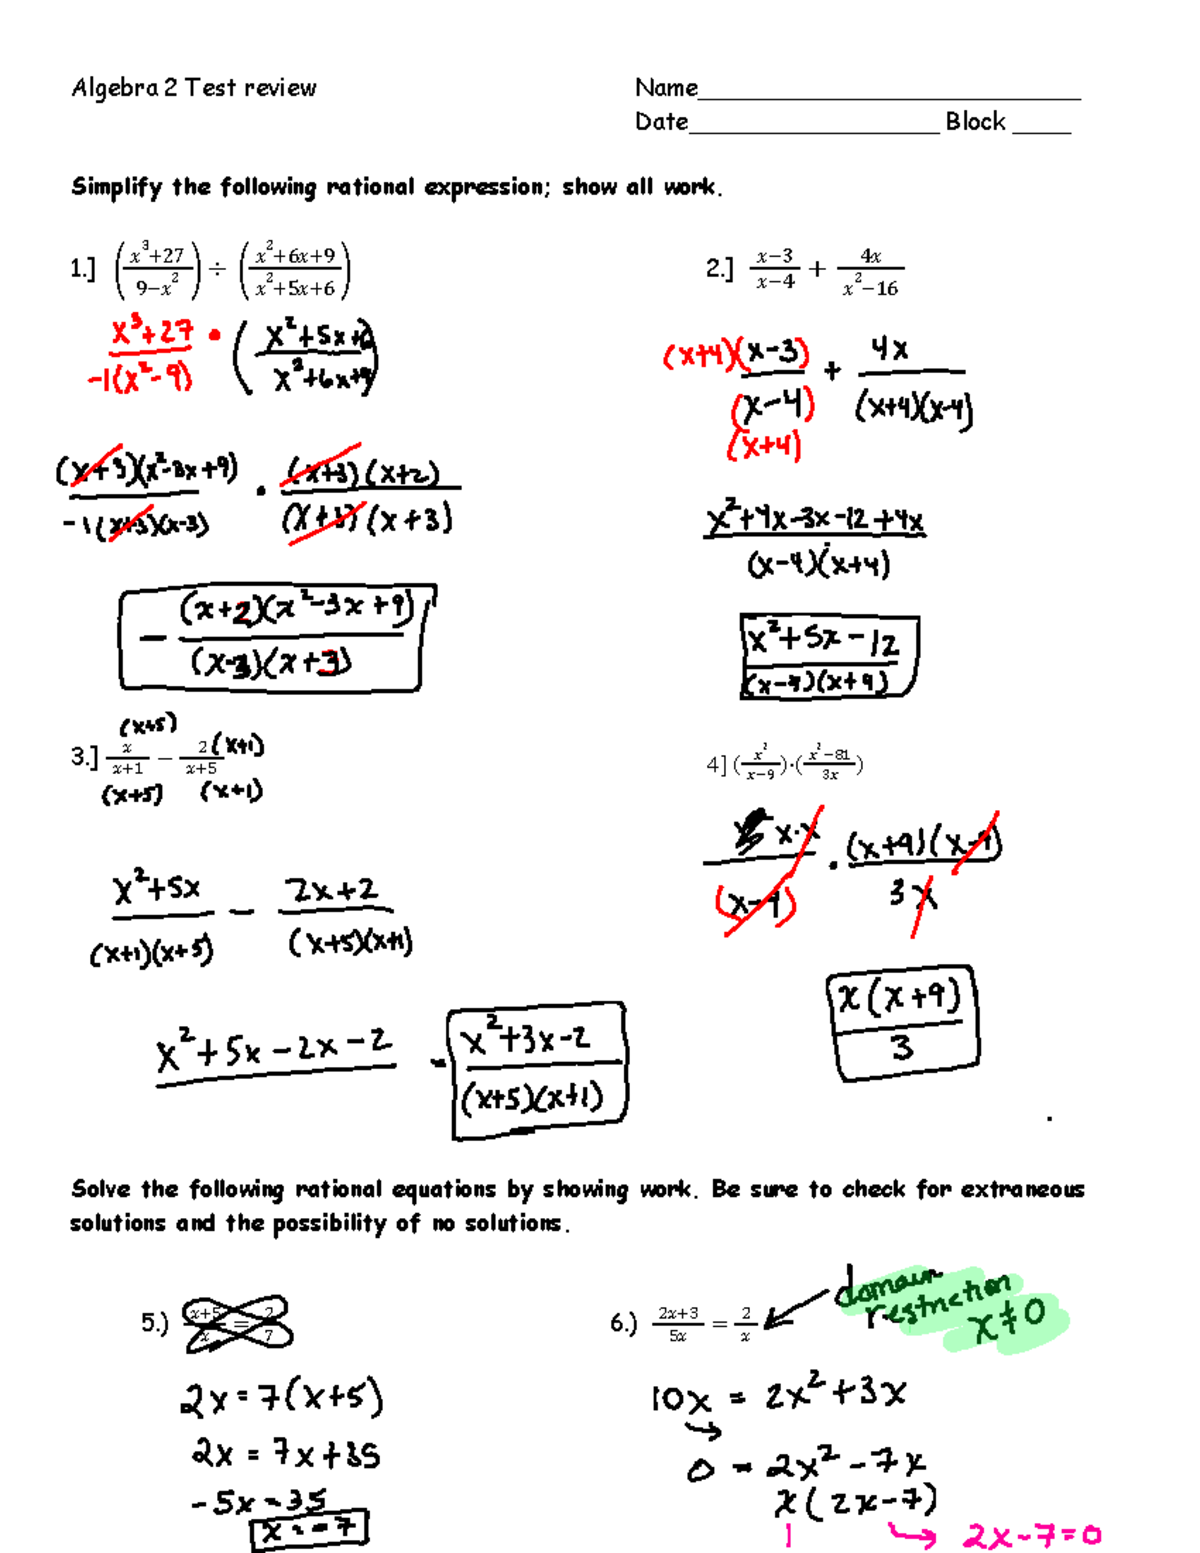 Algebra 2 Test review
Name____________________________
Date__________________ Block _____
Simplify the following rational expression; show all work.
1.] (x³+27 / 9−x²) ÷ (x²+6x+9 / x²+5x+6)
x³+27 / -1(x²-9) • (x²+5x+6 / x²+6x+9)
(x+3)(x²-3x+9) / -1(x+3)(x-3) • (x+3)(x+2) / (x+3)(x+3)
- (x+2)(x²-3x+9) / (x-3)(x+3)
2.] x−3 / x−4 + 4x / x²−16
(x+4)(x-3) / (x-4)(x+4) + 4x / (x+4)(x-4)
x²+4x-3x-12+4x / (x-4)(x+4)
x²+5x-12 / (x-4)(x+4)
3.] x (x+5) / x+1 (x+5) − 2(x+1) / x+5 (x+1)
x²+5x / (x+1)(x+5) - 2x+2 / (x+5)(x+1)
x²+5x-2x-2 = x²+3x-2 / (x+5)(x+1)
4] (x² / x−9)·(x²−81 / 3x)
x·x / (x-9) • (x+9)(x-9) / 3x
x(x+9) / 3
Solve the following rational equations by showing work. Be sure to check for extraneous
solutions and the possibility of no solutions.
5.) x+5 / x = 2 / 7
2x = 7(x+5)
2x = 7x+35
-5x = 35
x = -7
6.) 2x+3 / 5x = 2 / x
domain
restriction
x≠0
10x = 2x²+3x
0 = 2x²-7x
x(2x-7)
2x-7=0